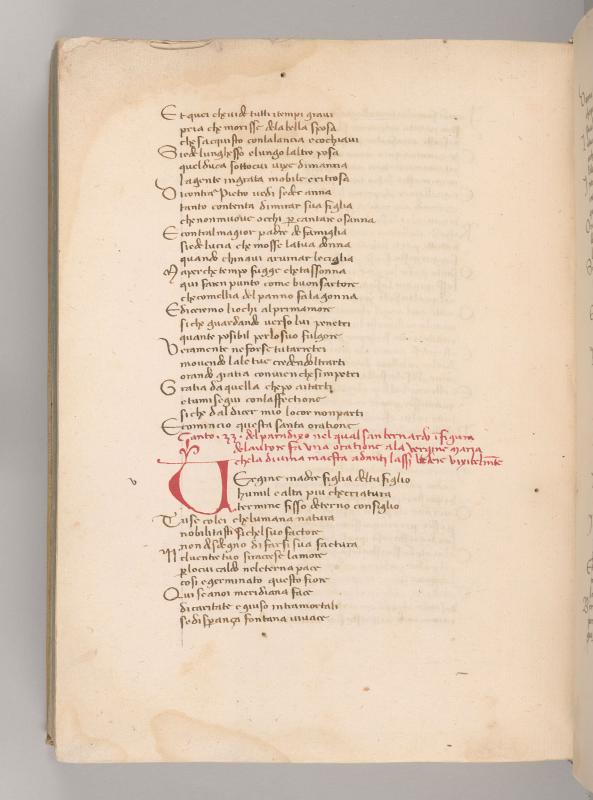 Et quei che vide tutti i tempi gravi
pria che morisse dela bella sposa
che sacquisto con la lancia e co chiavi
Siede lunghesso e lungo laltro posa
quel duca sotto cui vixe di manna
la gente ingrata mobile e ritrosa
Di contra Pietro vedi seder anna
tanto contenta di mirar sua figlia
che non muove occhi per cantare osanna
E contral magior padre de famiglia
siede lucia che mosse la tua donna
quando chinavi a ruinar le ciglia
Ma perchel tempo fugge che tassonna
qui farem punto come buon sartore
che comellia del panno fa la gonna
E diceremo li ochi al primamore
si che guardando verso lui penetri
quante posibil per lo suo fulgore
Veramente ne forse tu tarretri
movendo lale tue credendo ltrarti
orando gratia convien che simpetri
Gratia da quella che po aitarti
e tu mi segui con laffectione
si che dal dicer mio lo cor non parti
E comincio questa santa oratione
Canto .33. del paradixo nel qual san bernardo i figura
de lautore fa una oratione a la vergine maria
che la divina maesta a danti lassi vedere
VErgine madre figlia del tu figlio
humil e alta piu che creatura
termine fisso deterno consiglio
Tu se colei che lumana natura
nobilitasti si chel suo factore
non desdegno di farsi sua factura
Nel ventre tuo si racese lamore
per lo cui caldo nel eterna pace
cosi e germinato questo fiore
Qui se a noi meridiana face
di caritate e giuso intra mortali
se di sperança fontana vivace